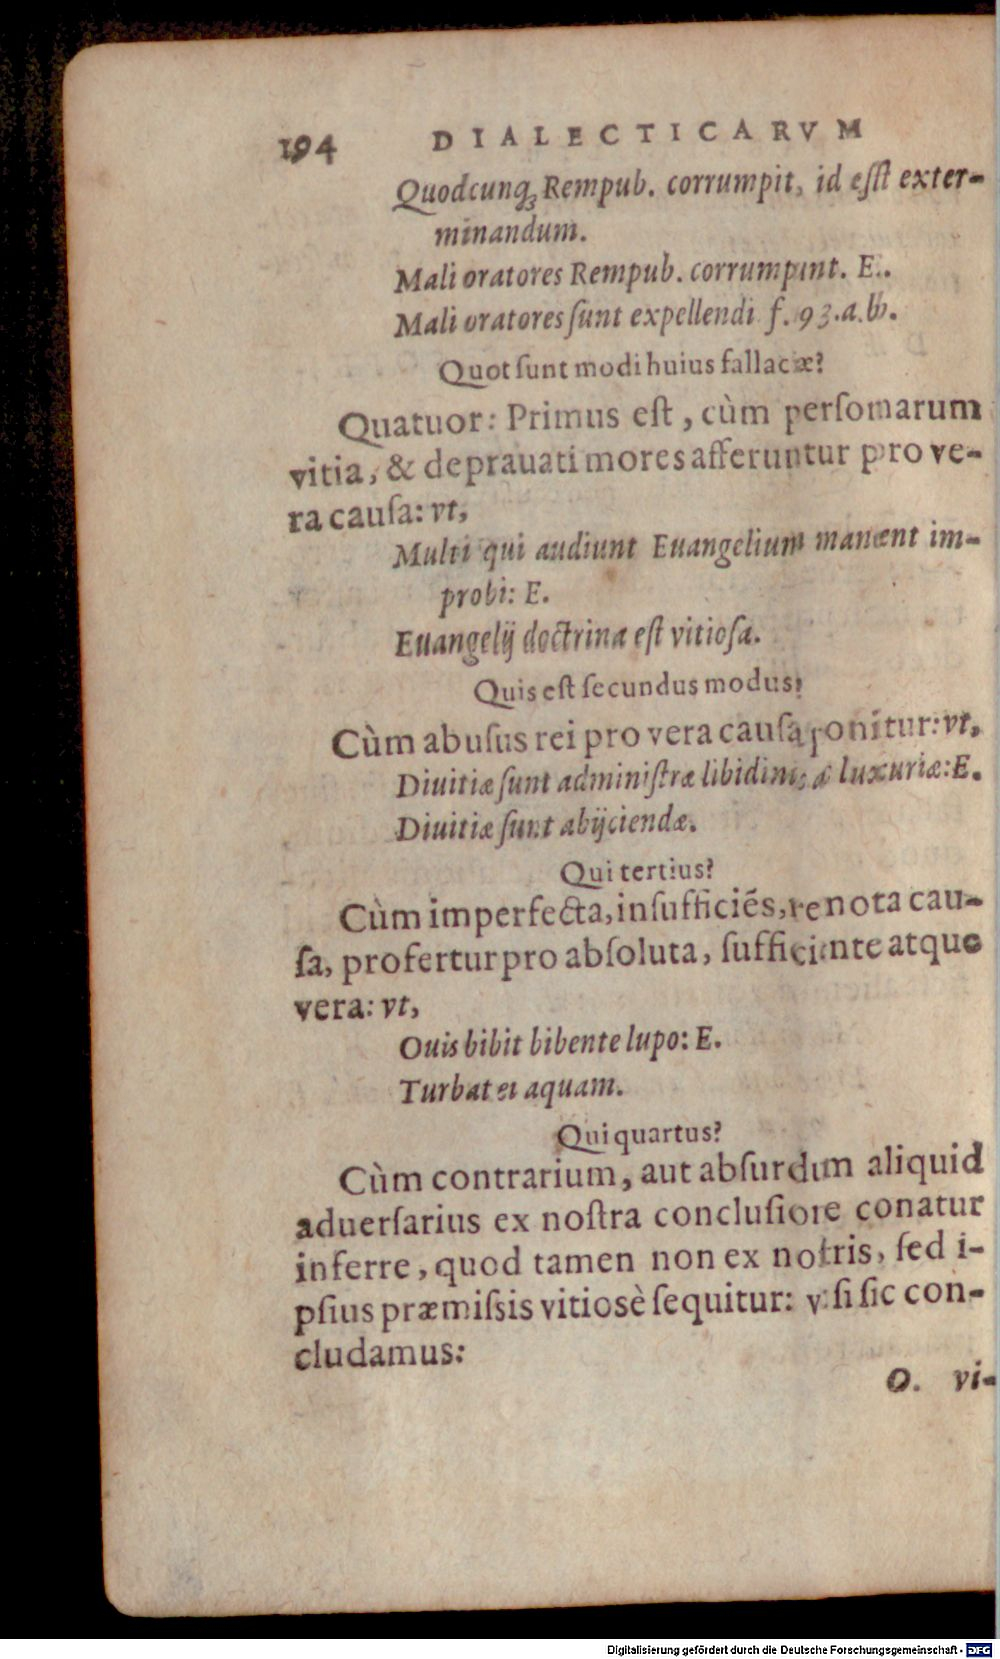 194 DIALECTICARVM
Quodcunq́ꝫ Rempub. corrumpit, id eſt exter-
minandum.
Mali oratores Rempub. corrumpunt. E.
Mali oratores ſunt expellendi f. 93.a.b.
Quot ſunt modi huius fallaciæ?
Quatuor: Primus eſt, cùm perſonarum
vitia, & deprauati mores afferuntur pro ve-
ra cauſa: vt,
Multi qui audiunt Euangelium manent im-
probi: E.
Euangelij doctrina eſt vitioſa.
Quis eſt ſecundus modus?
Cùm abuſus rei pro vera cauſa ponitur: vt,
Diuitiæ ſunt adminiſtræ libidinis & luxuriæ: E.
Diuitiæ ſunt abijciendæ.
Qui tertius?
Cùm imperfecta, inſufficiẽs, remota cau-
ſa, profertur pro abſoluta, ſufficiente atque
vera: vt,
Ouis bibit bibente lupo: E.
Turbat ei aquam.
Qui quartus?
Cùm contrarium, aut abſurdum aliquid
aduerſarius ex noſtra concluſione conatur
inferre, quod tamen non ex noſtris, ſed i-
pſius præmiſsis vitioſè ſequitur: vt ſi ſic con-
cludamus:
O. vi-
Digitalisierung gefördert durch die Deutsche Forschungsgemeinschaft - DFG